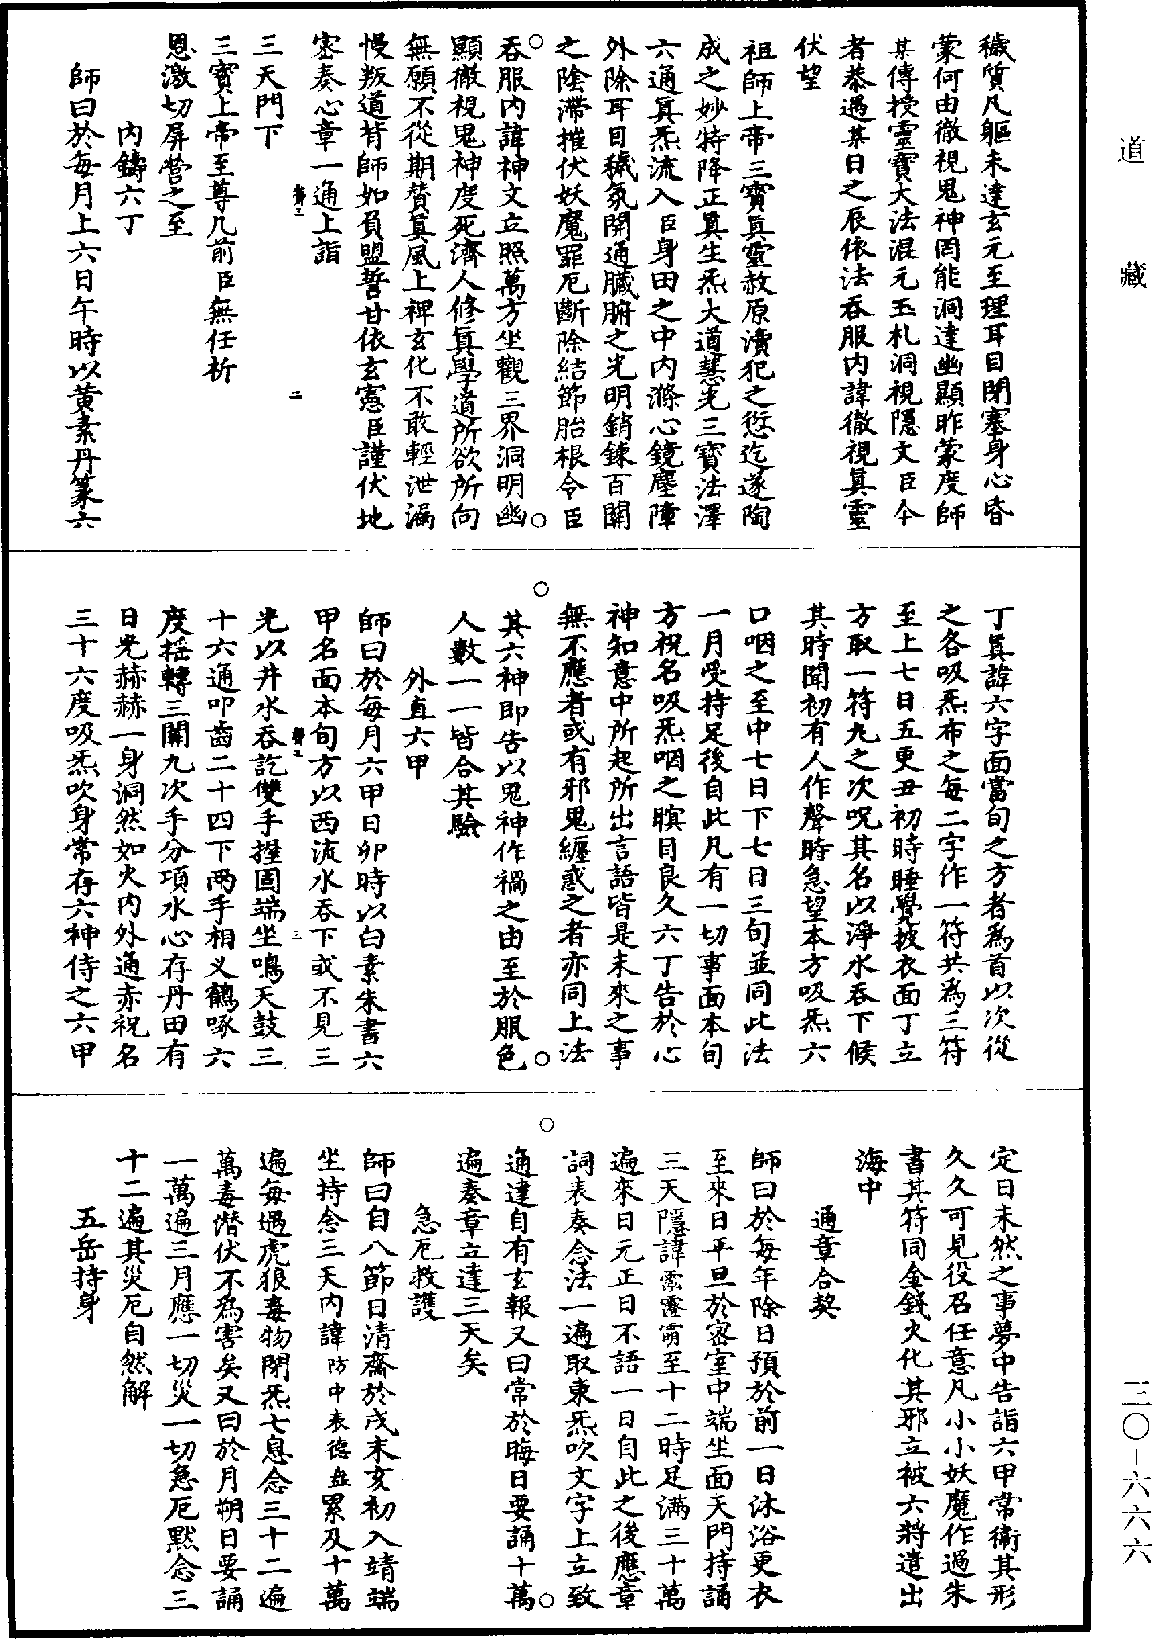 道藏
穢質凡軀未達玄元至理耳目閉塞身心昏
蒙何由徹視鬼神罔能洞達幽顯昨蒙度師
某傳授靈寶大法混元玉札洞視隱文臣今
者恭遇某日之辰依法吞服內諱徹視真靈
伏望
祖師上帝三寶真靈赦原瀆犯之愆迄遂陶
成之妙特降正真生炁大道慧光三寶法澤
六通真炁流入臣身田之中內滌心鏡塵障
外除耳目穢氛開通臟腑之光明銷鍊百關
之陰滯摧伏妖魔罪厄斷除結節胎根令臣
吞服內諱神文立照萬方坐觀三界洞明幽
顯徹視鬼神度死濟人修真學道所欲所向
無願不從期贊真風上裨玄化不敢輕泄漏
慢叛道背師如負盟誓甘依玄憲臣謹伏地
密奏心章一通上詣
三天門下
三寶上帝至尊几前臣無任祈
恩激切屏營之至
內鑄六丁
師曰於每月上六日午時以黃素丹篆六
丁真諱六字面當旬之方者為首以次從
之各吸炁布之每二字作一符共為三符
至上七日五更丑初時睡覺披衣面丁立
方取一符丸之次呪其名以淨水吞下候
其時聞初有人作聲時急望本方吸炁六
口咽之至中七日下七日三旬並同此法
一月受持足後自此凡有一切事面本旬
方祝名吸炁咽之瞑目良久六丁告於心
神知意中所起所出言語皆是未來之事
無不應者或有邪鬼纏惑之者亦同上法
其六神即告以鬼神作禍之由至於服色
人數一一皆合其驗
外直六甲
師曰於每月六甲日卯時以白素朱書六
甲名面本旬方以西流水吞下或不見三
光以井水吞訖雙手握固端坐鳴天鼓三
十六通叩齒二十四下兩手相叉鶴啄六
度搖轉三關九次手分項水心存丹田有
日光赫赫一身洞然如火內外通赤祝名
三十六度吸炁吹身常存六神侍之六甲
定日未然之事夢中告詣六甲常衞其形
久久可見役召任意凡小小妖魔作過朱
書其符同金錢火化其邪立被六將遣出
海中
通章合契
師曰於每年除日預於前一日沐浴更衣
至來日平旦於密室中端坐面天門持誦
三天隱諱至十二時足滿三十萬
遍來日元正日不語一日自此之後應章
詞表奏念法一遍取東炁吹文字上立致
通達自有玄報又曰常於晦日要誦十萬
遍奏章立達三天矣
急厄救護
師曰自八節日清齋於戌末亥初入靖端
坐持念三天內諱防中表德並累及十萬
遍每遇虎狼毒物閉炁七息念三十二遍
萬毒潛伏不為害矣又曰於月朔日要誦
一萬遍三月應一切災一切急厄默念三
十二遍其災厄自然解
五岳持身
三〇-六六六